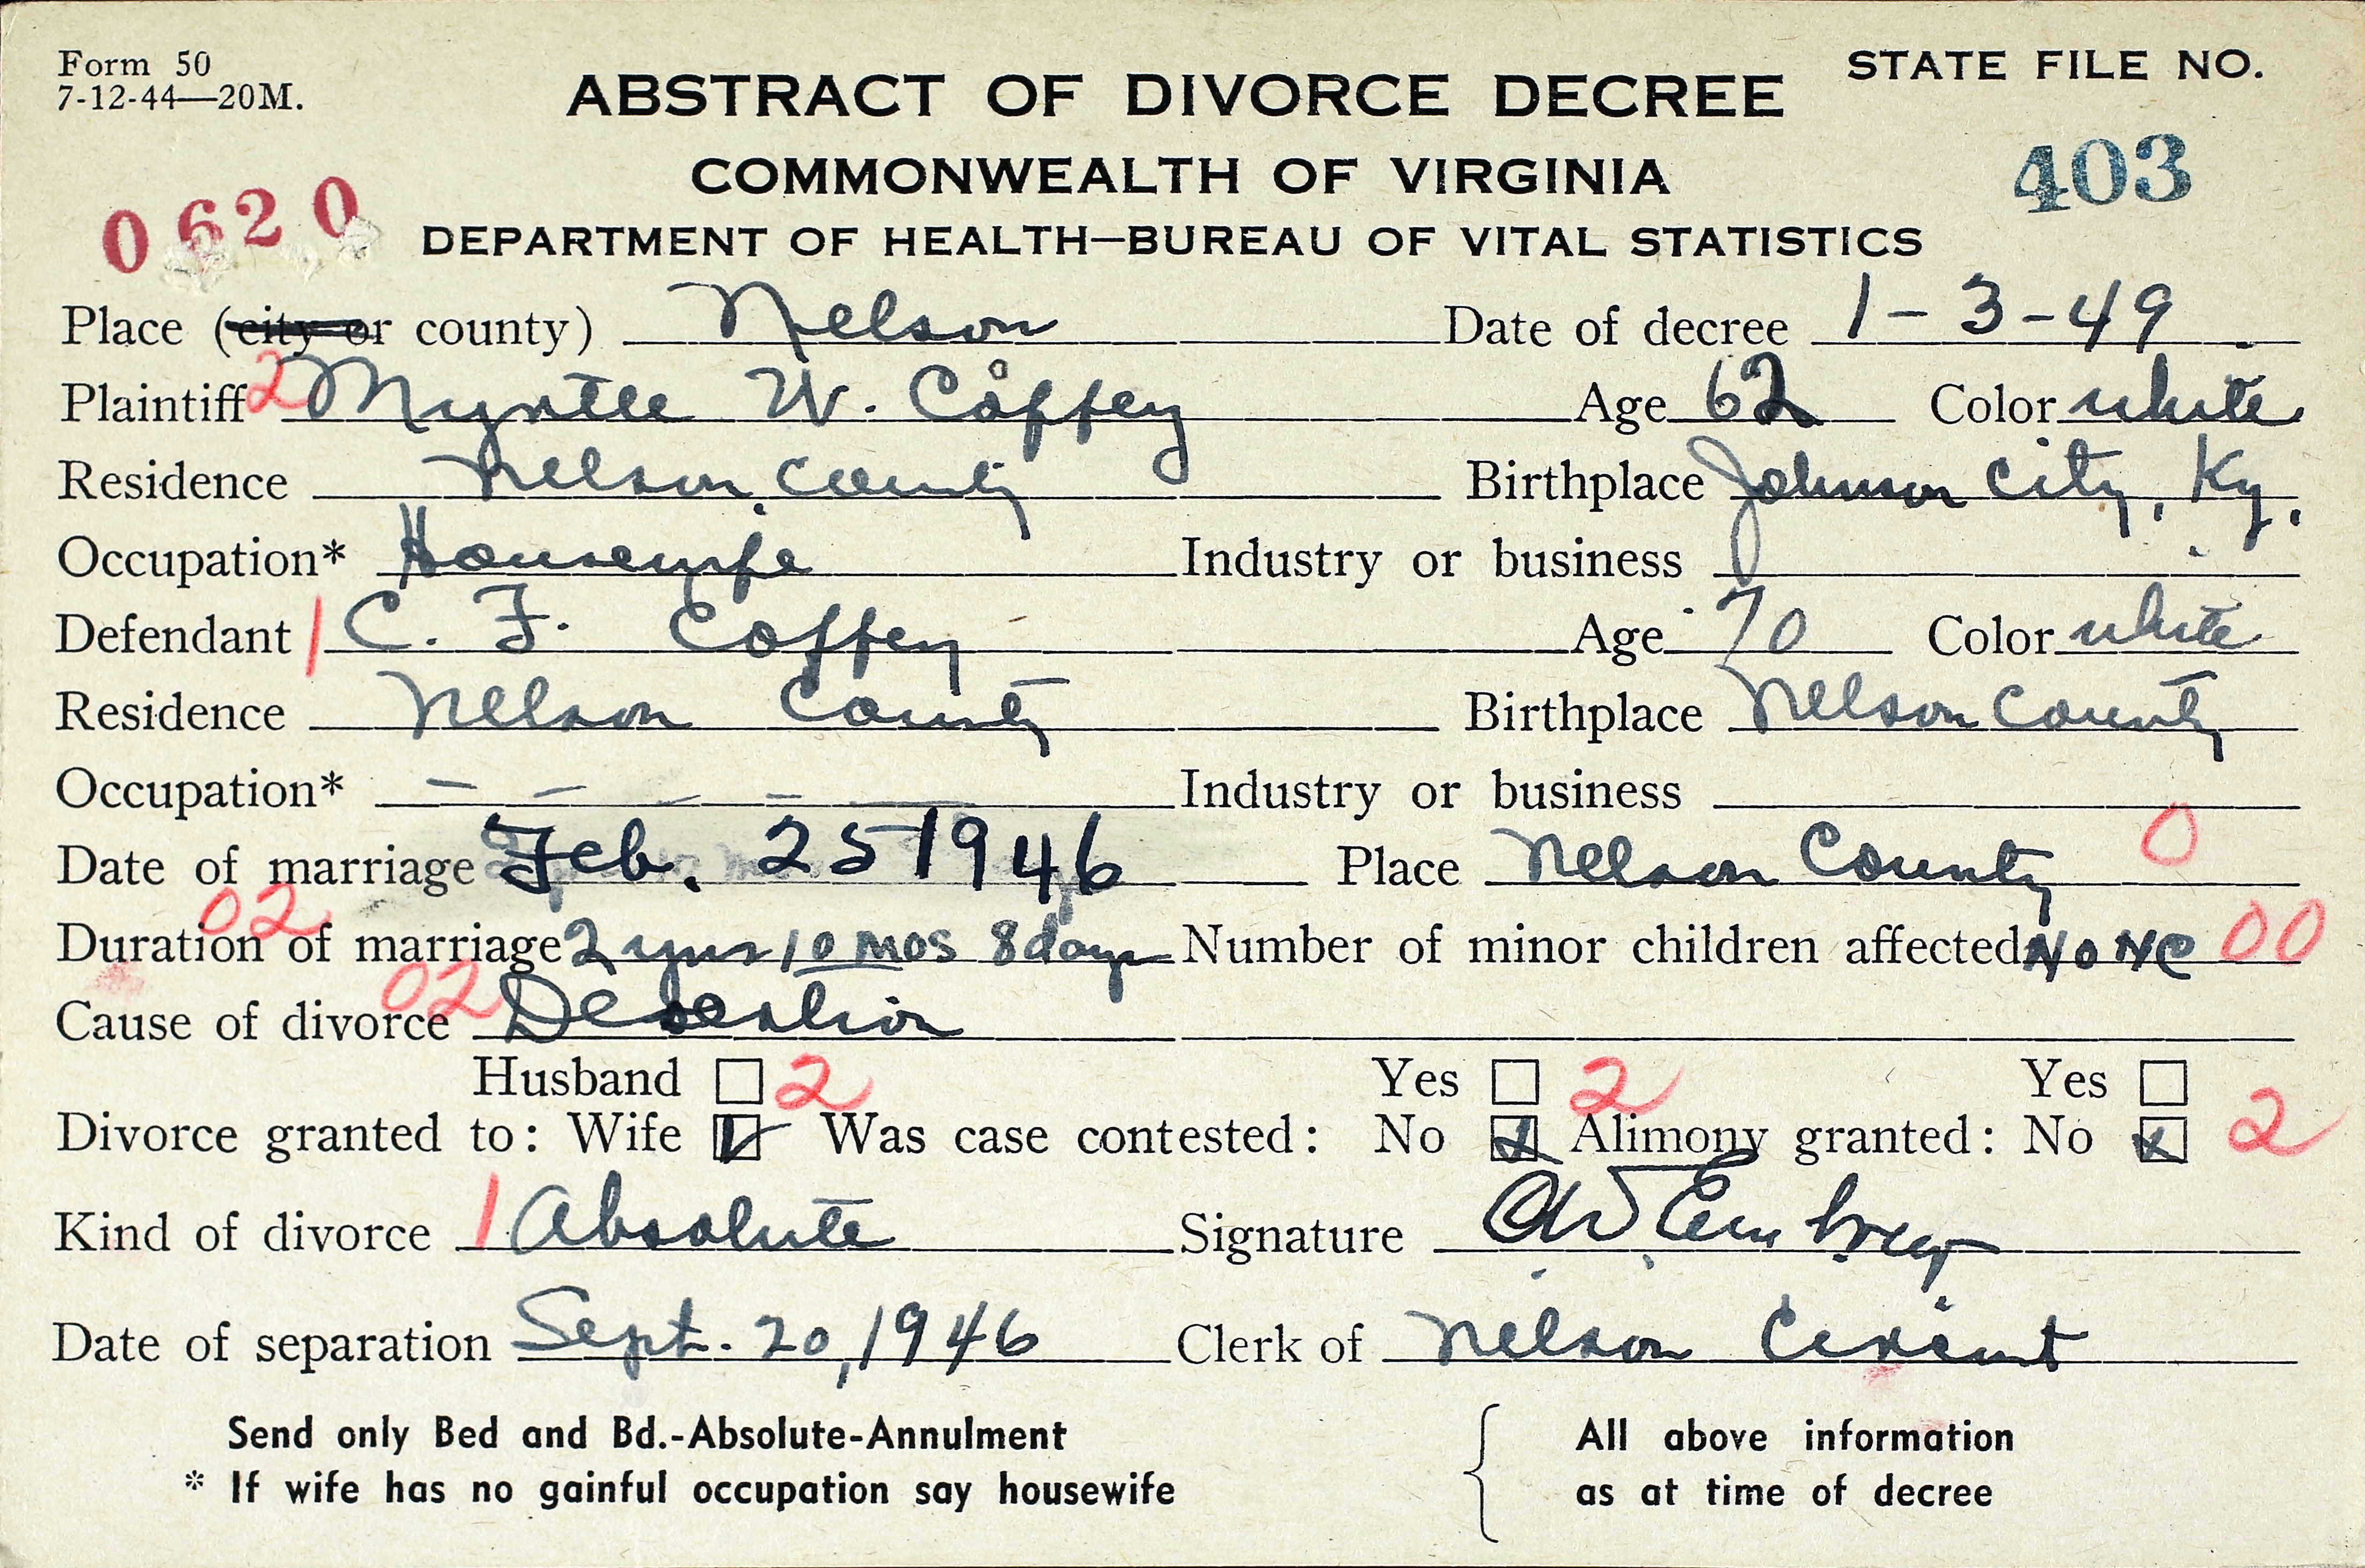 Form 50
7-12-44—20M.
STATE FILE NO.
ABSTRACT OF DIVORCE DECREE
403
COMMONWEALTH OF VIRGINIA
0620
DEPARTMENT OF HEALTH—BUREAU OF VITAL STATISTICS
Place (city or county) Nelson Date of decree 1-3-49
Plaintiff 2 Myrtle W. Coffey Age 62 Color white
Residence Nelson County Birthplace Johnson City, Ky.
Occupation* Housewife Industry or business
Defendant 1 C. F. Coffey Age 70 Color white
Residence Nelson County Birthplace Nelson County
Occupation* – – – – Industry or business
Date of marriage Feb. 25 1946 Place Nelson County 0
02
Duration of marriage 2 yrs 10 mos 8 days Number of minor children affected None 00
02
Cause of divorce Desertion
Husband ☐ 2 Yes ☐ 2 Yes ☐
Divorce granted to: Wife ☑ Was case contested: No ☑ Alimony granted: No ☑ 2
Kind of divorce 1 Absolute Signature CW Embrey
Date of separation Sept. 20, 1946 Clerk of Nelson Circuit
Send only Bed and Bd.-Absolute-Annulment
* If wife has no gainful occupation say housewife
All above information
as at time of decree